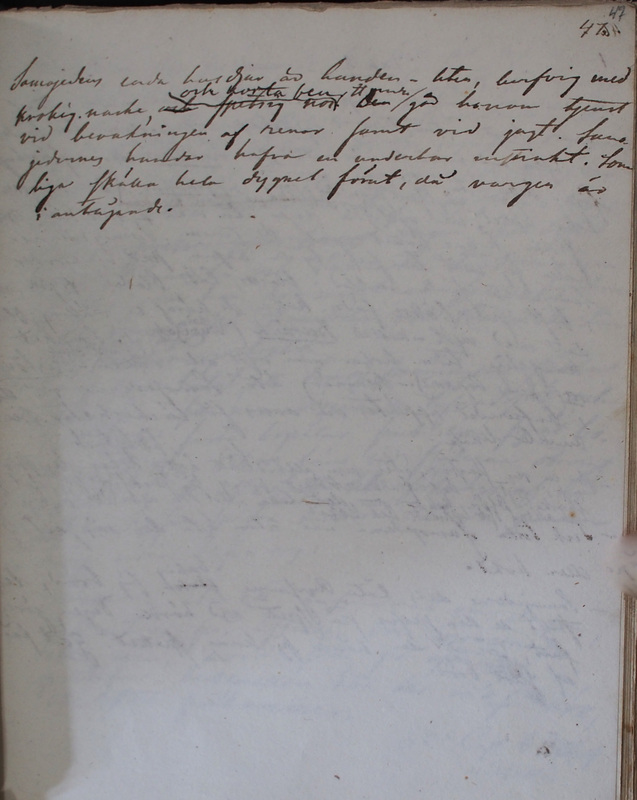 47
47
Samojedens enda husdjur är hunden - liten, lurfvig med
och korta ben
krokig nacke och spetsig nos. Den gör honom tjenst
vid bevakningen af renar samt vid jagt. Samo-
jedernes hundar hafva en underbar instinkt. Som-
liga skälla hela dygnet förut, då vargen är
i antågande.